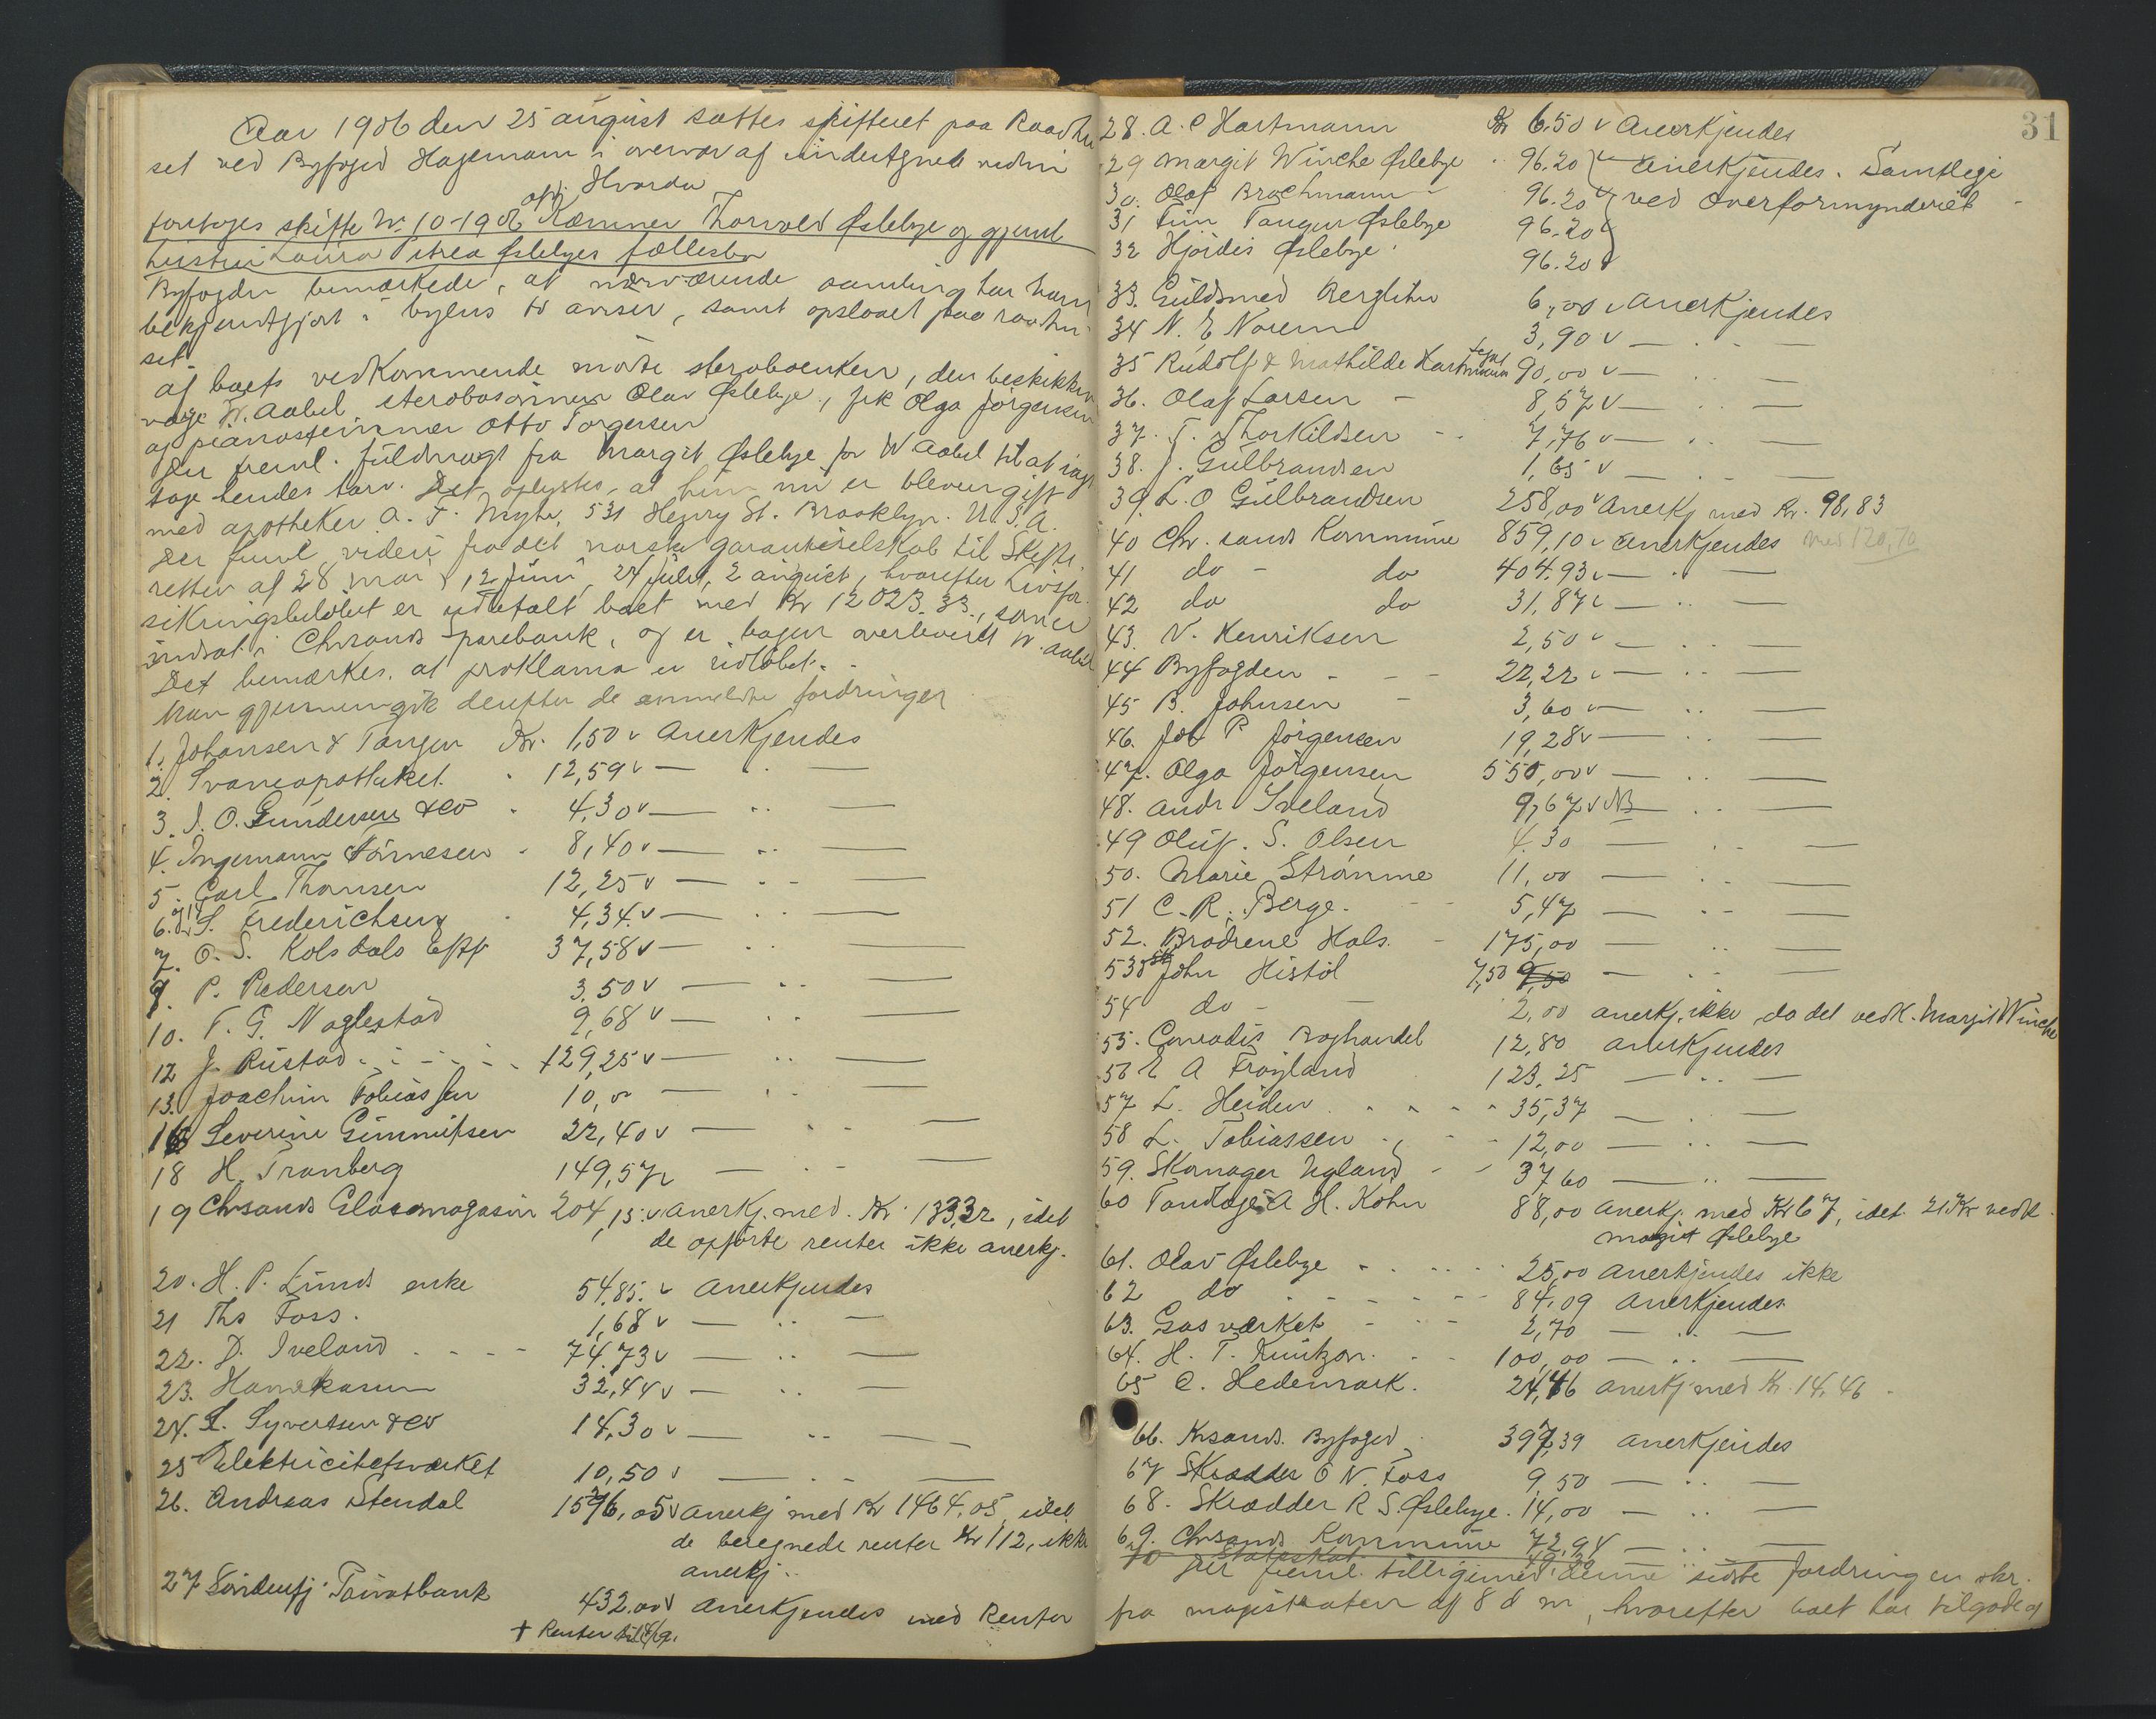 Aar 1906 den 25 august sattes skifteret paa Raadhu
set ved Byfoged Hagemann i overvær af undertgnede vidni
Hvorda
foretoges skifte Nr. 10-1906 afd. Kæmner Thorvald Øslebye og gjenl
hustru Laura Petrea Øslebyes fællesbo
Byfogden bemærkede, at nærværende samling har han
bekjendtgjort i byens to aviser, samt opslaaet paa raadhu-
set.
Af boets vedkommende mødte sterboenken, den beskikkede
værge W. Aabel sterbosønnen Olav Øslebye, frk Olga Jörgensen
og pianostemmer Otto Torgersen
Der freml. fuldmagt fra Margit Øslebye for W Aabel til at vare
tage hendes tarv. Det oplystes, at hun nu er bleven gift
med apotheker A. T. Myhr, 531 Henry St. Brooklyn. U.S.A.
Der freml videre fra det norske garantiselskab til Skifte
retten af 28 mai, 12 juni, 24 juli, 2 august, hvorefter livsfor
sikringsbelöbet er udbetalt boet med Kr 12023.33, som er
indsat i Chrsands Sparebank, og er bogen overleveret W. Aabel
Det bemærkes, at proklama er udlöbet.
Man gjennemgik derefter de anmeldte fordringer
1. Johansen & Tangen Kr. 1,50 v Anerkjendes
2. Svaneapotheket. " 12,59 v — " —
3. J. O. Gundersen & Co " 4,30 v — " —
4. Ingemann Törnesen " 8,40 v — " —
5. Carl Thomsen 12,25 v — " —
6. og 11 S. Frederichsen 4,34. v — " —
7. O. S. Kolsdals Eftf 37,58 v — " —
9. P. Pedersen 3,50 v — " —
10. T. G. Naglestad 9,68 v — " —
12 J. Rustad 129,25 v — " —
13. Joachim Tobiassen 10,00 — " —
16 Severine Gunnufsen 22,40 v — " —
18 H. Tranberg 149,57 — " —
19 Chrsands Glasmagasin 204,15 v anerkj. med Kr. 133,32, idet
de opförte renter ikke anerkj.
20. H. P. Lunds enke 54,85. v Anerkjendes
21 Ths Foss. 1,68 v — " —
22. D. Iveland 74,73 v — " —
23. Havnekassen 32,44 v — " —
24. L. Syvertsen & Co 14,30 v — " —
25 Elektricitetsværket 10,50 v — " —
26. Andreas Stendal 1576,05 v anerkj med Kr 1464,05, idet
de beregnede renter Kr 112, ikke
anerkj.
27 Söndenfj. Privatbank 432.00 v Anerkjendes med Renter
+ Renter til
31
28. A. C Hartmann Kr 6.50 v Anerkjendes
29 Margit Winche Øslebye " 96.20 v Anerkjendes. Samtlige
30. Olaf Brachmann " 96.20 v ved Overformynderiet
31 Finn Tangen Øslebye 96.20 v
32 Hjördis Øslebye 96.20 v
33. Guldsmed Berglihn 6,00 v Anerkjendes
34 N. E Norem 3,90 v — " —
35 Rudolf & Mathilde Hartmann legat 90,00 v — " —
36. Olaf Larsen 8,57 v — " —
37. T. Thorkildsen 7,76 v — " —
38. J. Gulbrandsen 1,65 v — " —
39. L. O Gulbrandsen 258,00 v Anerkj med Kr. 98,83
40 Chr. sands Kommune 859,10 v Anerkjendes med 120,70
41 do do 404.93 v — " —
42 do do 31,87 v — " —
43. N. Henriksen 2,50 v — " —
44 Byfogden 22,22 v — " —
45 B. Johnsen 3,60 v — " —
46. Joh P Jörgensen 19,28 v — " —
47. Olga Jörgensen 550,00 v — " —
48. Andr Iveland 9,67 v NB — " —
49 Oluf. S. Olsen 4.30 — " —
50. Marie Strömme 11,00 — " —
51 C. R. Berge. 5,47 — " —
52. Brødrene Hals. 175,00 — " —
53 John Histöl 7,50 9,50 — " —
54 do 2,00 anerkj. ikke, da det vedk. Margit Winche
55. Conradis Boghandel 12,80 Anerkjendes
56 E A Fröyland 123,25 — " —
57 L. Heiden 35,37 — " —
58 L. Tobiassen 12,00 — " —
59. Skomager Ugland 37 60 — " —
60 Tandlæge A H. Kohn 88,00 anerkj. med Kr 67, idet 21 Kr vedk
Margit Øslebye
61. Olav Øslebye 25,00 Anerkjendes ikke
62 do 84,09 Anerkjendes
63. Gasværket 2,70 — " —
64. H. T. Knutzon. 100,00 — " —
65 C. Hedemark. 24,46 anerkj med Kr. 14,46
66. Krsands Byfoged 397,39 Anerkjendes
67 Skrædder O N. Foss 9,50 — " —
68. Skrædder R S. Øslebye. 14,00 — " —
69. Chrsands Kommune 72,94 — " —
70 Statsskat 49,30
Der freml. tilligemed denne sidste fordring en skr.
fra magistraten af 8 d m, hvorefter boet har tilgode af